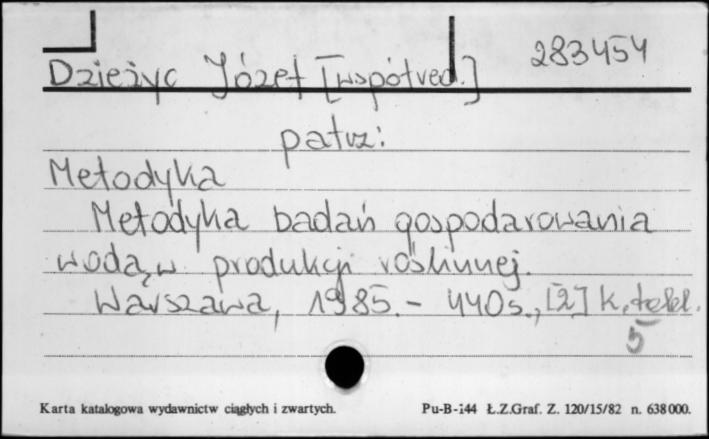 283454
Dzieżyc Józef [współred.]
patrz:
Metodyka
Metodyka badań gospodarowania
wodą w produkcji roślinnej.
Warszawa, 1985. - 440 s., [2] k. tabl.
5
Karta katalogowa wydawnictw ciągłych i zwartych.
Pu-B-144 Ł.Z.Graf. Z. 120/15/82 n. 638000.